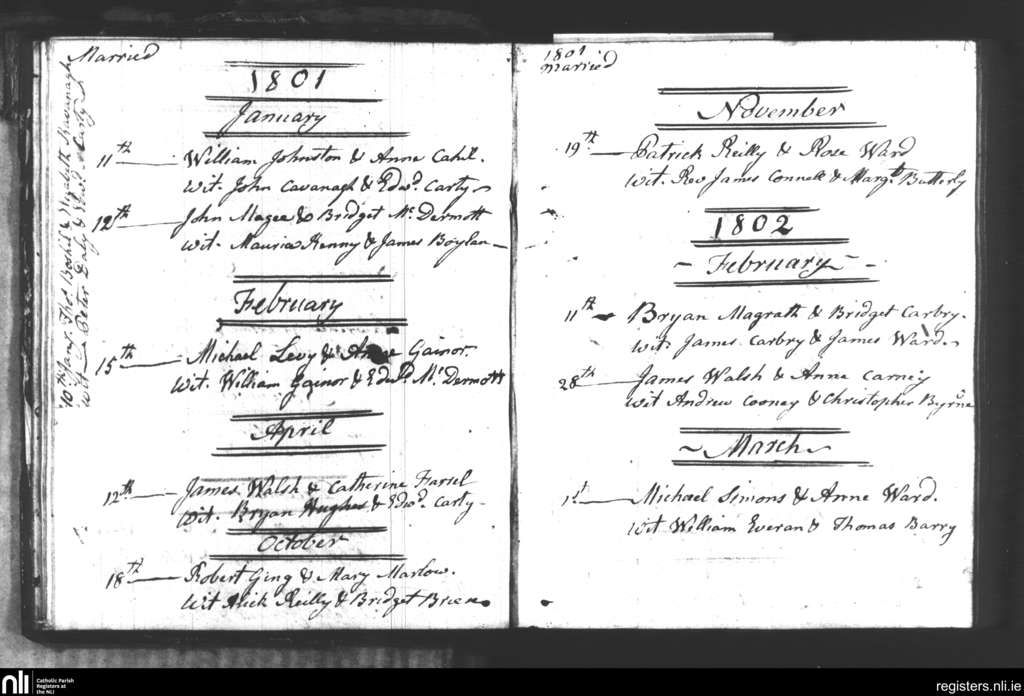 Married
1801
January
11th William Johnston & Anne Cahil.
wit. John Cavanagh & Edwd. Carty
12th John Magee & Bridget Mc. Dermott
wit. Maurice Kenny & James Boylan
February
15th Michael Levy & Anne Gainor.
wit. William Gainor & Edwd. Mc. Dermott
April
12th James Walsh & Catherine Farrel
wit. Bryan Hughes & Edwd. Carty
October
18th Robert Ging & Mary Marlow.
Wit Alick Reilly & Bridget Brien
10th Jany. & Elizabeth Kavanaghe
wit Peter Daly & Edwd. Carty
1801
Married
November
19th Patrick Reilly & Rose Ward
wit. Rev James Connell & Margt. Butterly
1802
February
11th Bryan Magrath & Bridget Carbry.
wit. James Carbry & James Ward
28th James Walsh & Anne Carney
wit Andrew Cooney & Christopher Byrne
March
1st Michael Simons & Anne Ward.
wit William Everan & Thomas Barry
nli
Catholic Parish
Registers at
the NLI
registers.nli.ie